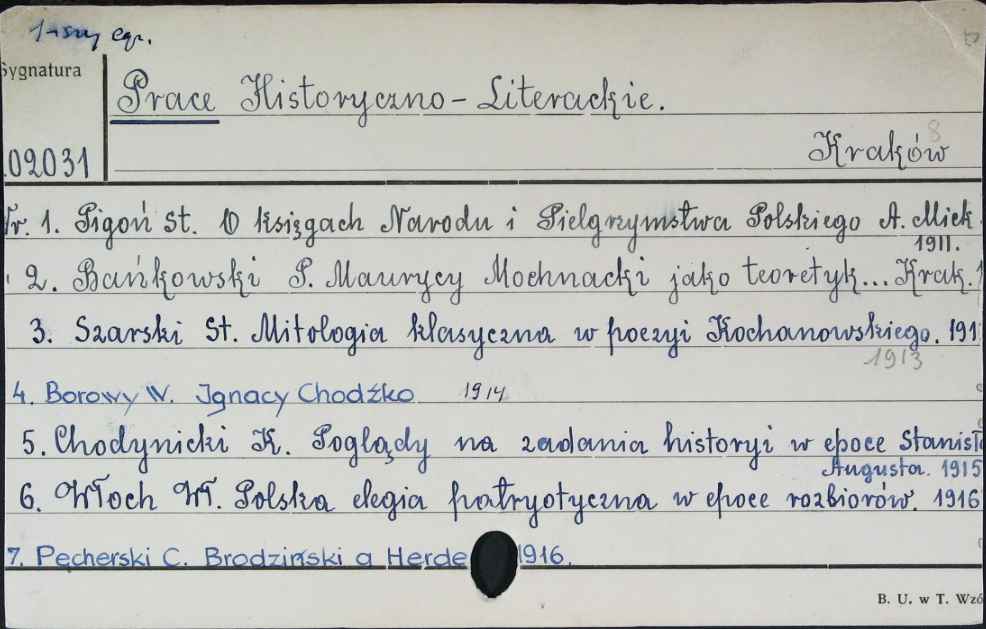 1-szy egz.
Sygnatura
Prace Historyczno-Literackie.
8
02031
Kraków
Nr. 1. Pigoń St. O księgach Narodu i Pielgrzymstwa Polskiego A. Mick
1911.
" 2. Bańkowski P. Maurycy Mochnacki jako teoretyk... Krak. 1
3. Szarski St. Mitologia klasyczna w poezyi Kochanowskiego. 191
1913
4. Borowy W. Ignacy Chodźko 1914
5. Chodynicki K. Poglądy na zadania historyi w epoce Stanisł
Augusta. 1915
6. Włoch Wł. Polska elegia patryotyczna w epoce rozbiorów. 1916
7. Pęcherski C. Brodziński a Herde 1916.
B. U. w T. Wzó